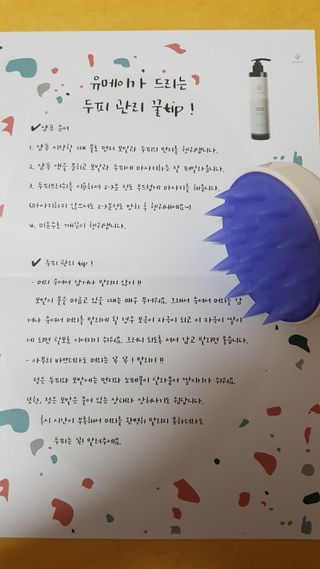 유메이가 드리는
두피 관리 꿀tip !
✓샴푸 순서
1. 샴푸 시작할 때 물로 먼저 모발과 두피의 먼지를 헹궈냅니다.
2. 샴푸 액을 묻히고 모발과 두피에 마사지하는 양 펴발라줍니다.
3. 두피브러쉬를 이용하여 2-3분 정도 부드럽게 마사지를 해줍니다.
(마사지하지 않으셔도 2-3분정도 방치 후 헹궈내세요~)
4. 미온수로 깨끗이 헹궈냅니다.
✓ 두피 관리 tip !
- 머리 숙여서 감거나 말리지 않기 !!
모발이 물을 머금고 있을 때는 매우 무거워요. 그래서 숙여서 머리를 감
거나 숙여서 머리를 말리게 될 경우 모공이 자극이 되고 이 자극이 쌓이
게 되면 탈모로 이어지기 쉬워요. 그러니 되도록 서서 감고 말리면 좋습니다.
- 아무리 바쁘더라도 머리는 꼭 꼭 ! 말리기 !!
젖은 두피와 모발에는 먼지와 노폐물이 달라붙어 쌓이기가 쉬워요.
또한, 젖은 모발은 불어 있는 상태라 상하기도 쉽답니다.
혹시 시간이 부족해서 머리를 완벽히 말리지 못하더라도
두피는 꼭! 말려주세요.